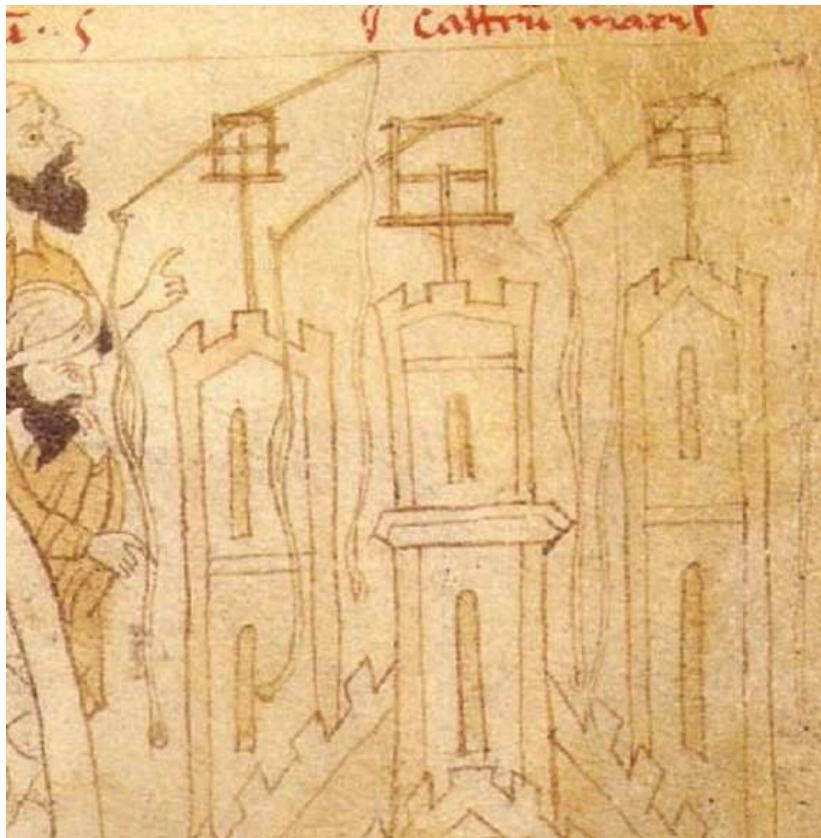 Castrū maris